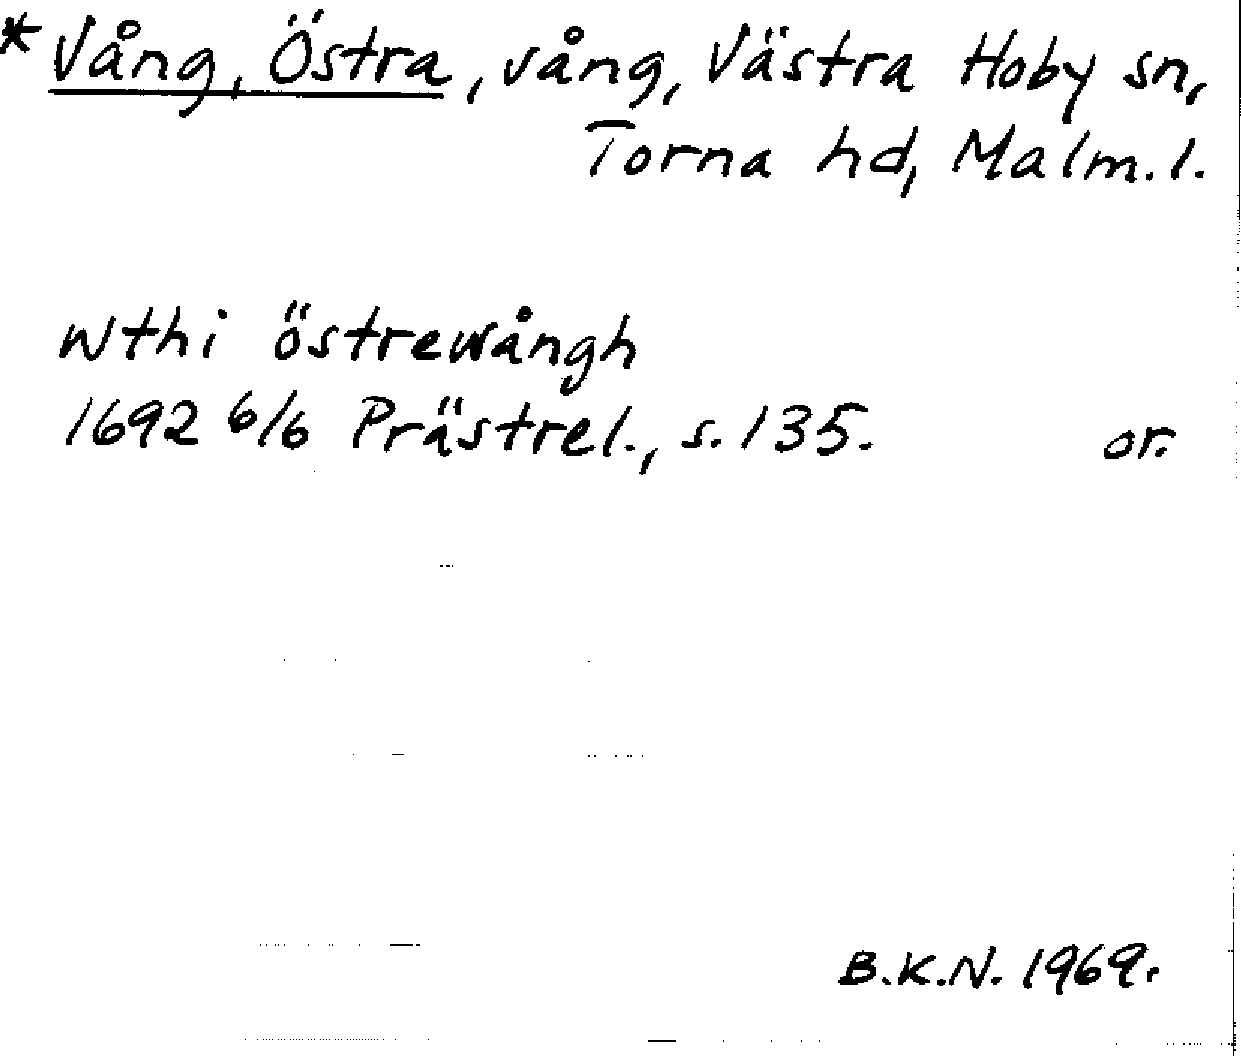 * Vång, Östra, vång, Västra Hoby sn,
Torna hd, Malm. l.
wthi östrewångh
1692 6/6 Prästrel., s. 135. or.
B.K.N. 1969.